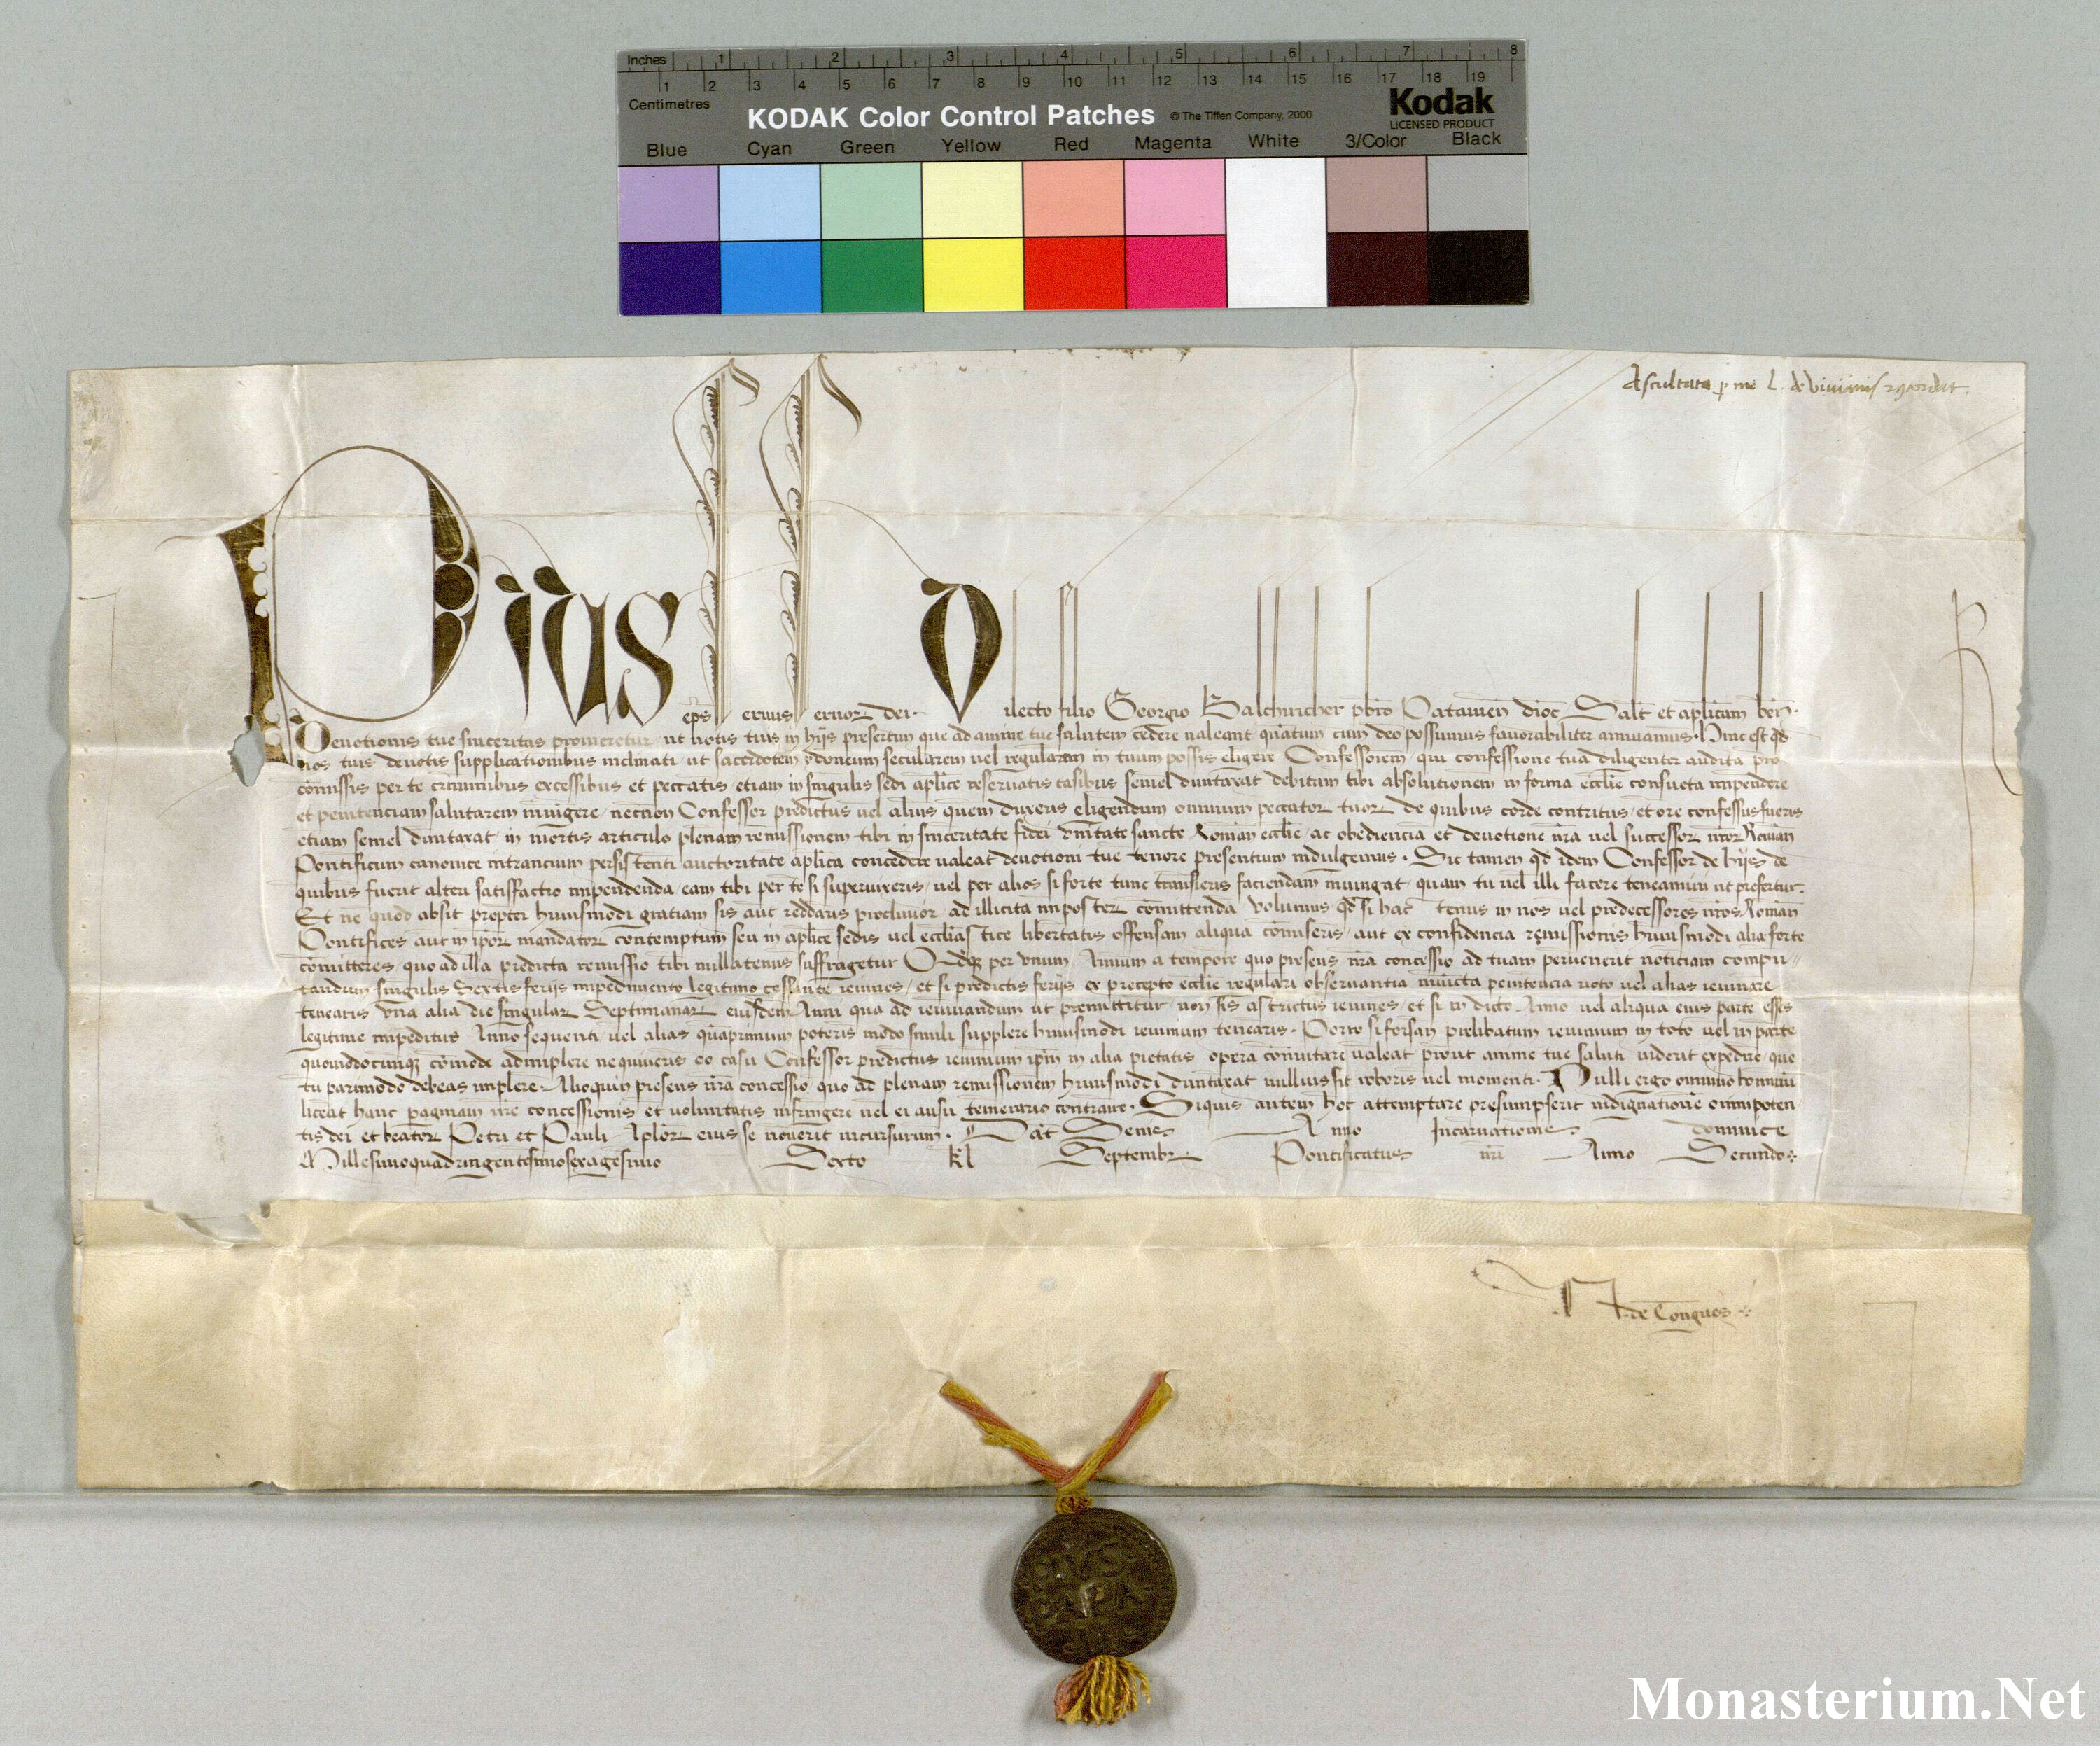 Inches 1 2 3 4 5 6 7 8
1 2 3 4 5 6 7 8 9 10 11 12 13 14 15 16 17 18 19
Centimetres
KODAK Color Control Patches © The Tiffen Company, 2000 Kodak
LICENSED PRODUCT
Blue Cyan Green Yellow Red Magenta White 3/Color Black
Ascultata p me L. de
Pius eps seruus seruor dei. Dilecto filio Georgio pbro Patauien dioc Salt et aplicam ben.
Deuotionis tue sinceritas promeretur ut uotis tuis in hijs presertim que ad anime tue salutem cedere ualeant quatum cum deo possumus fauorabiliter annuamus. Hinc est qd
nos tuis deuotis supplicationibus inclinati ut sacerdotem ydoneum secularem uel regularem in tuum possis eligere Confessorem qui confessione tua diligenter audita pro
comissis per te criminibus excessibus et peccatis etiam in singulis sedi aplice reseruatis casibus semel duntaxat debitam tibi absolutionem in forma ecclie consueta impendere
et penitenciam salutarem iniugere necnon Confessor predictus uel alius quem duxeris eligendum omnium peccator tuor de quibus corde contritus et ore confessus fueris
etiam semel duntaxat in mortis articulo plenam remissionem tibi in sinceritate fidei unitate sancte Roman ecclie ac obediencia et deuotione nra uel successor nror Roman
Pontificum canonice intrancium persistenti auctoritate aplica concedere ualeat deuotioni tue tenore presentium indulgemus. Sic tamen qd idem Confessor de hijs de
quibus fuerit alteri satisfactio impendenda eam tibi per te si superuixeris uel per alios si forte tunc transieris faciendam iniungat quam tu uel illi facere teneamini ut prefertur.
Et ne quod absit propter huiusmodi gratiam sis aut reddaris procliuior ad illicita imposter comittenda uolumus qd si hac tenus in nos uel predecessores nros Roman
Pontifices aut in ipor mandator contemptum seu in aplice sedis uel ecclias tice libertatis offensam aliqua comiseris aut ex confidencia remissionis huiusmodi alia forte
comitteres quo ad illa predicta remissio tibi nullatenus suffragetur Qdq per unum Annum a tempore quo presens nra concessio ad tuam peruenerit noticiam compu
tandum singulis Sextis ferijs impedimento legitimo cessante ieiunes et si predictis ferijs ex precepto ecclie regulari obseruantia iniucta penitencia uoto uel alias ieiunare
tenearis una alia die singular Septimanar eiusdem Anni qua ad ieiunandum ut premittitur non sis astrictus ieiunes et si in dicto Anno uel aliqua eius parte esses
legitime impeditus Anno sequenti uel alias quaprimum poteris modo simili supplere huiusmodi ieiunium tenearis. Porro si forsan prelibatum ieiunium in toto uel in parte
quomodocunq comode adimplere nequiueris eo casu Confessor predictus ieiunium ipm in alia pietatis opera comutare ualeat prout anime tue saluti uiderit expedire que
tu parimodo debeas implere. Alioquin presens nra concessio quo ad plenam remissionem huiusmodi duntaxat nullius sit roboris uel momenti. Nulli ergo omnino hominu
liceat hanc paginam nre concessionis et uoluntatis infringere uel ei ausu temerario contraire. Siquis autem hoc attemptare presumpserit indignatione omnipoten
tis dei et beator Petri et Pauli Aplor eius se nouerit incursurum. Dat Senis Anno Incarnationis dominice
Millesimoquadringentesimosexagesimo Sexto kl Septembr Pontificatus nri Anno Secundo
de Congnes
PIVS
PAPA
II
Monasterium.Net